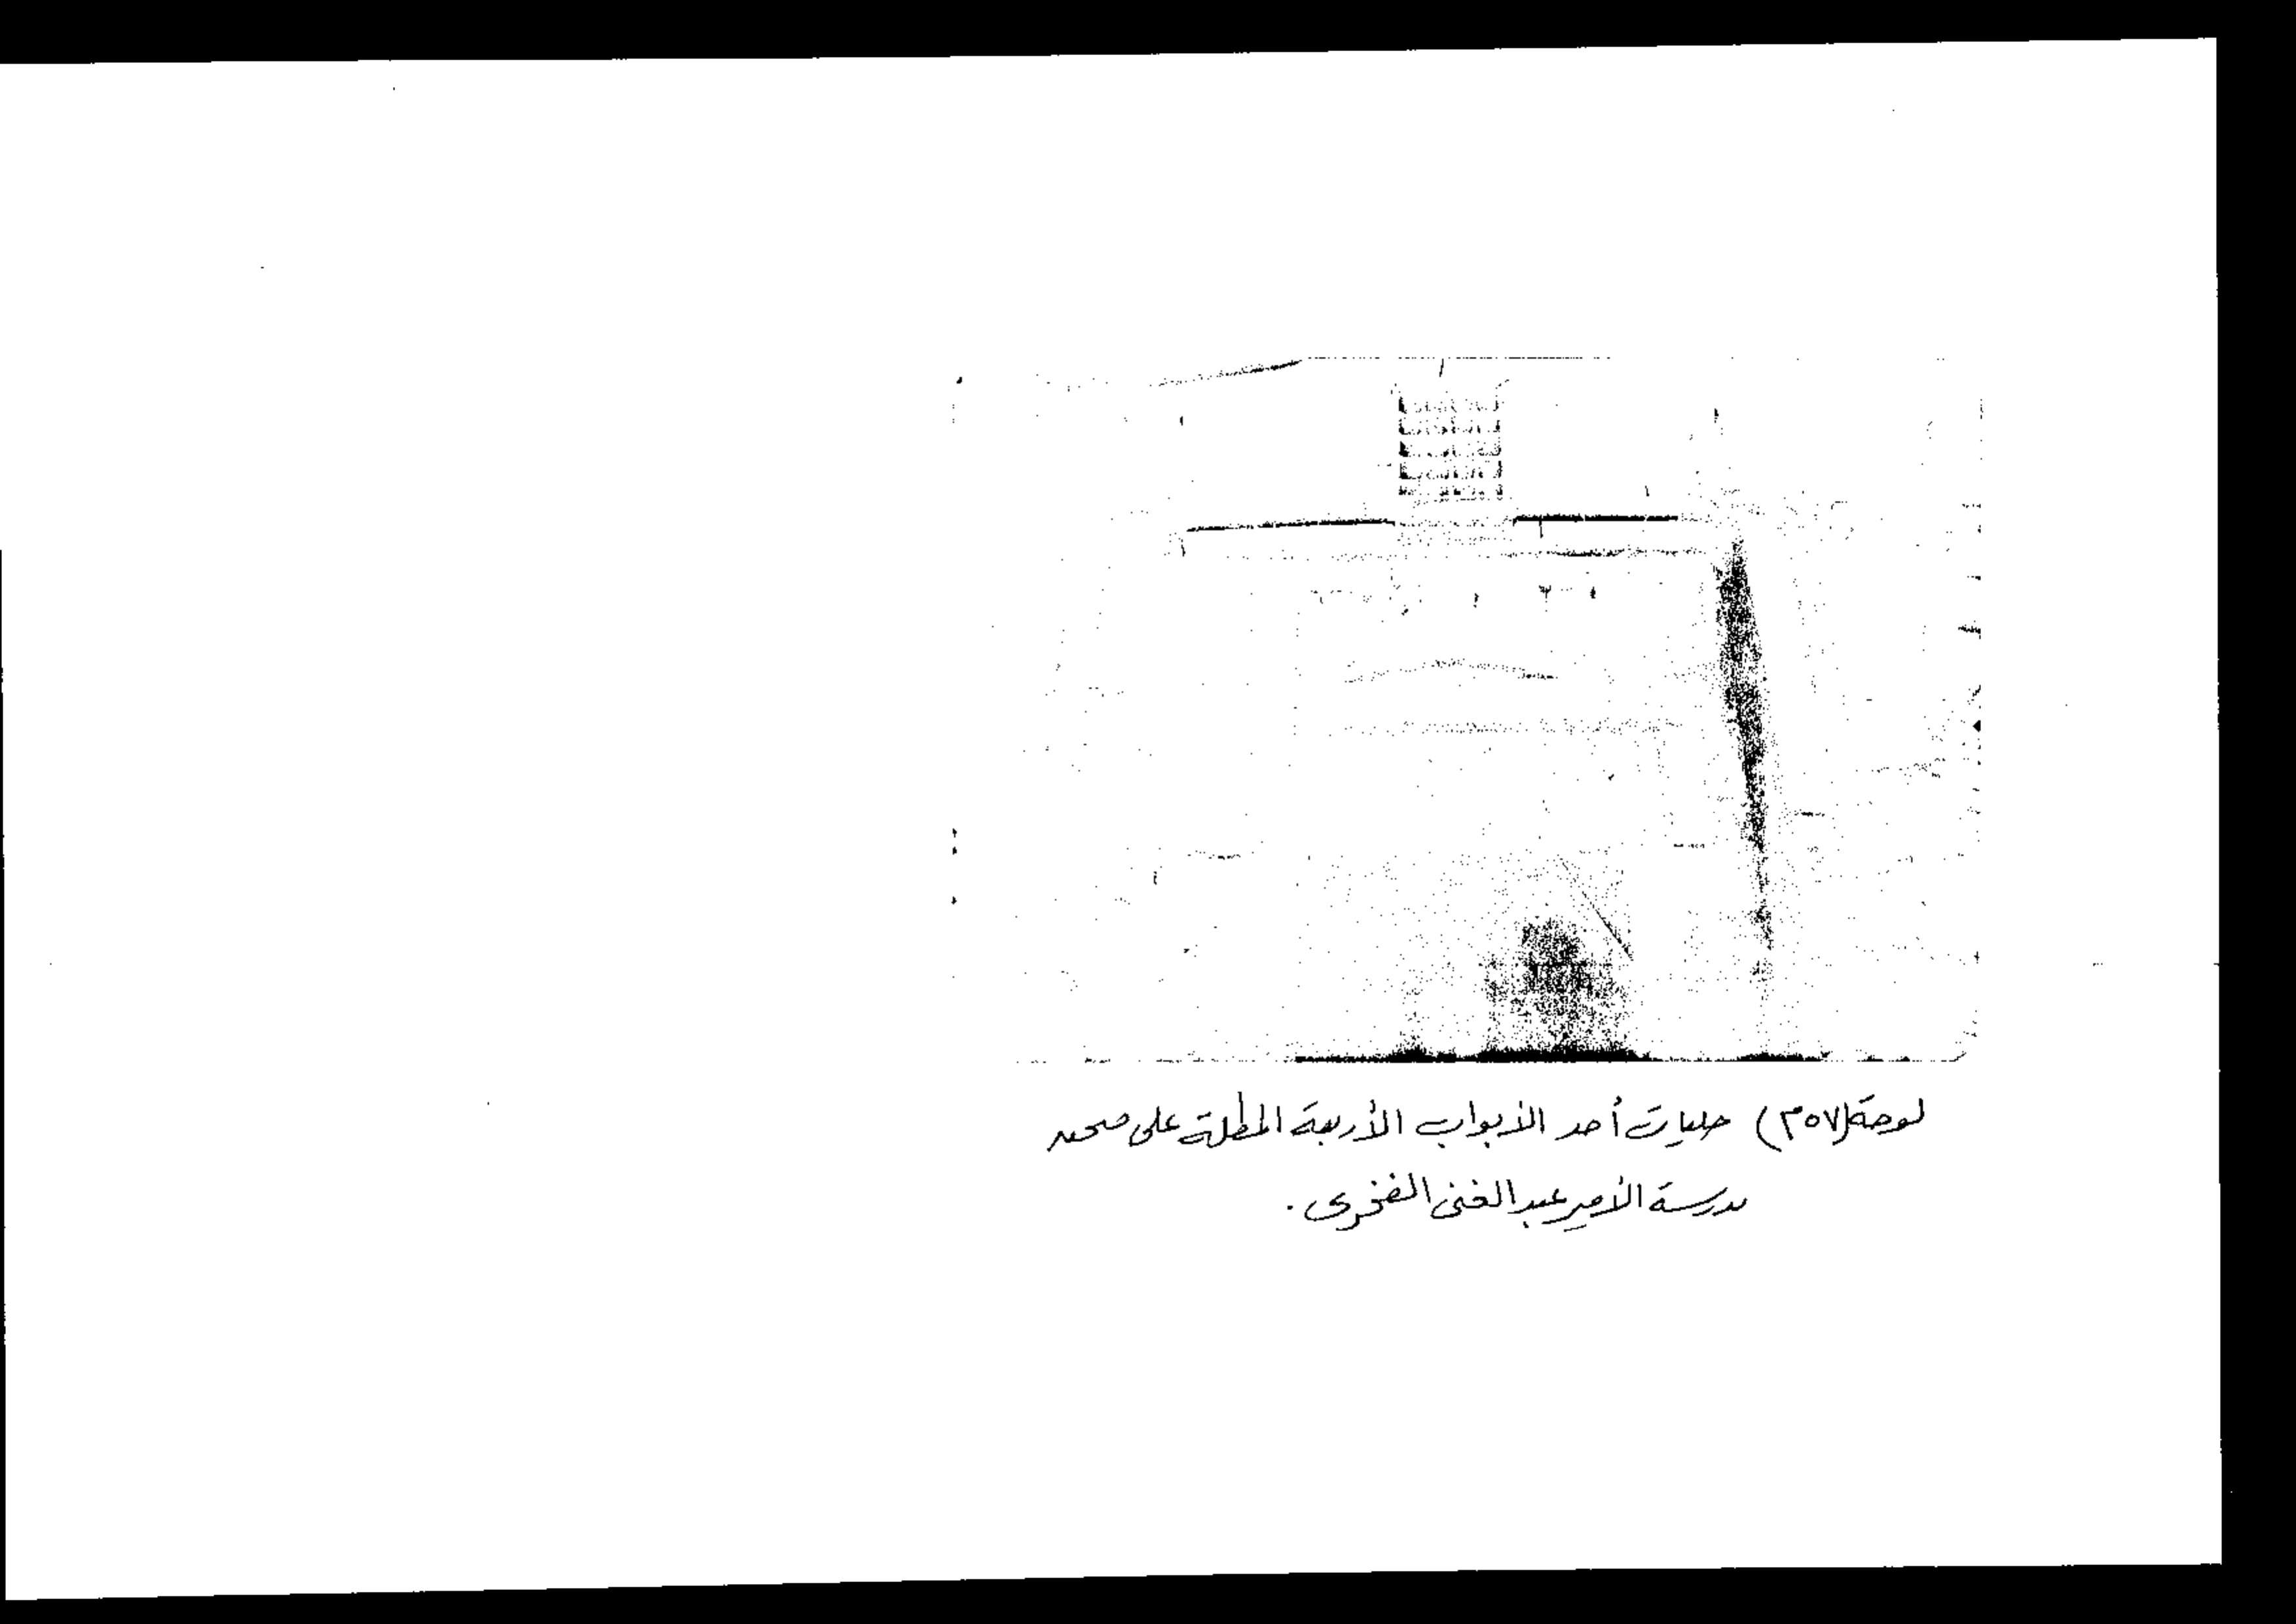 لوحة (٣٥٧) حليات أحد الأبواب الأربعة المطلة على صحن
مدرسة الأمير عبد الغنى الفخرى .